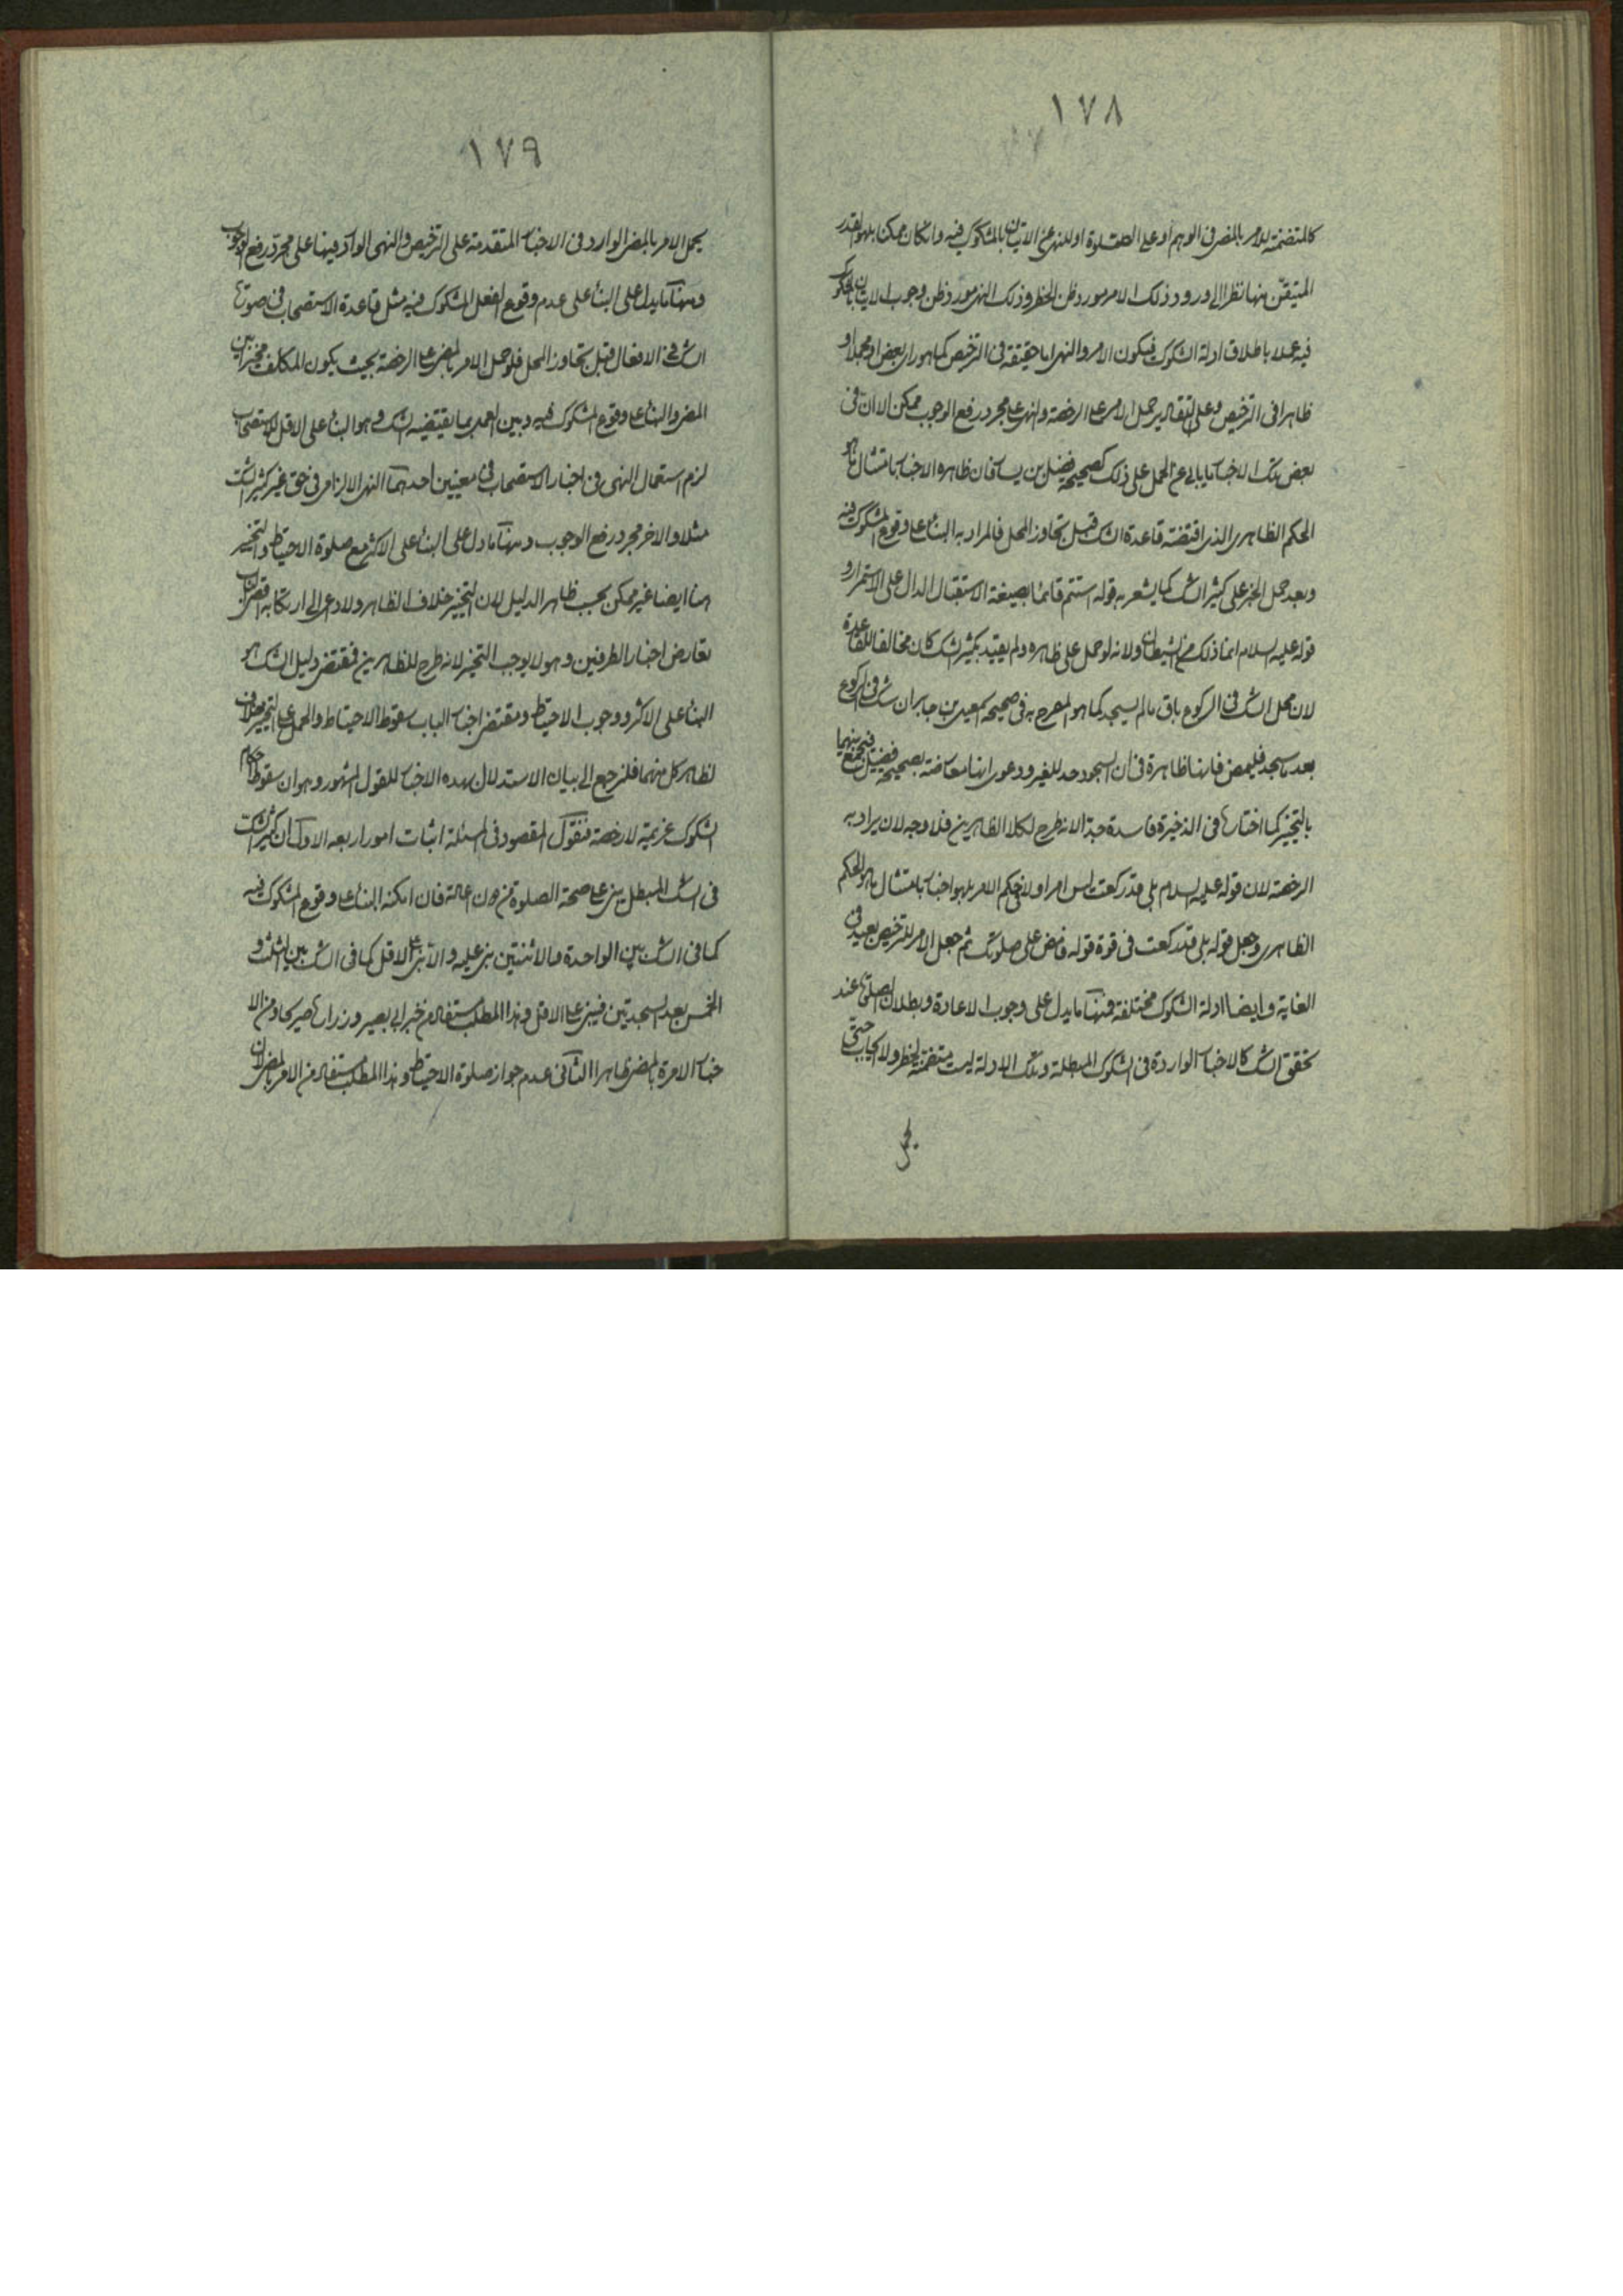 ١٧٨
كالمتضمنة للامر بالمضى فى الوهم أو على الصلوة او للنهى عن الاتيان بالمشكوك فيه وان كان ممكن بل هو القدر
المتيقن منها نظرا الى ورود ذلك الامر مورد ظن الحظر وذلك النهى مورد ظن وجوب الاتيان بالمشكوك
فيه عملا باطلاق ادلة الشكوك فيكون الامر والنهى اما حقيقة فى الترخيص كما هو راى بعض او مجملا او
ظاهرا فى الترخيص وعلى التقادير حمل الامر على الرخصة والنهى على مجرد رفع الوجوب ممكن الا ان فى
بعض تلك الاخبار ما يابى عن الحمل على ذلك كصحيحة فضيل بن يسار فان ظاهره الاخبار بامتثال ما هو
الحكم الظاهرى الذى اقتضته قاعدة الشك قبل تجاوز المحل فالمراد به البناء على وقوع المشكوك فيه
وبعد حمل الخبر على كثير الشك كما يشعر به قوله استتم قائما بصيغة الاستقبال الدال على الاستمرار و
قوله عليه السلام انما ذلك من الشيطان ولانه لو حمل على ظاهره ولم يقيد بكثير الشك كان مخالفا للقاعدة
لان محل الشك فى الركوع باق مالم يسجد كما هو المصرح به فى صحيحة اسمعيل بن جابر ان شك فى الركوع
بعد ما سجد فليمض فانها ظاهرة فى ان السجود حد للغير ودعوى انها معارضة بصحيحة فضيل فيجمع بينهما
بالتخيير كما اختارها فى الذخيرة فاسدة جدا لانه طرح لكلا الظاهرين فلا وجه لان يراد به
الرخصة لان قوله عليه السلام بلى قد ركعت ليس امرا ولا فى حكم الامر بل هو اخبار بامتثال ما هو الحكم
الظاهرى وجعل قوله بلى قد ركعت فى قوة قوله فامض على صلوتك ثم جعل الامر للترخيص بعيد فى
الغاية وايضا ادلة الشكوك مختلفة فمنها ما يدل على وجوب الاعادة وبطلان الصلوة عند
تحقق الشك كالاخبار الواردة فى الشكوك المبطلة وتلك الادلة ليست متضمنة للحظر ولا ايجاب حتى
يحمل
١٧٩
يحمل الامر بالمضى الوارد فى الاخبار المتقدمة على الترخيص والنهى الوارد فيها على مجرد رفع الوجوب
ومنها ما يدل على البناء على عدم وقوع الفعل المشكوك فيه مثل قاعدة الاستصحاب فى صورة
الشك فى الافعال قبل تجاوز المحل فلو حمل الامر بالمضى على الرخصة بحيث يكون المكلف مخيرا بين
المضى والبناء على وقوع المشكوك فيه وبين العمل بما يقتضيه الشك وهو البناء على الاقل للاستصحاب
لزم استعمال النهى فى اخبار الاستصحاب فى معنيين احدهما النهى الالزامى فى حق غير كثير الشك
مثلا والاخر مجرد رفع الوجوب ومنها ما دل على البناء على الاكثر مع صلوة الاحتياط والتخيير
هنا ايضا غير ممكن بحسب ظاهر الدليل لان التخيير خلاف الظاهر ولا داعى الى ارتكابه لان قصارى
تعارض اخبار الطرفين وهو لا يوجب التخيير لانه طرح للظاهرين فمقتضى دليل الشك هو
البناء على الاكثر ووجوب الاحتياط ومقتضى اخبار الباب سقوط الاحتياط والحمل على التخيير مناف
لظاهر كل منهما فلنرجع الى بيان الاستدلال بهذه الاخبار للقول المشهور وهو ان سقوط احكام
الشكوك عزيمة لا رخصة فنقول المقصود فى المسئلة اثبات امور اربعه الاول ان كثير الشك
فى الشك المبطل يبنى على صحة الصلوة من دون اعادة فان امكنه البناء على وقوع المشكوك فيه
كما فى الشك بين الواحدة والاثنتين بنى عليه والا بنى على الاقل كما فى الشك بين الثلث و
الخمس بعد السجدتين فيبنى على الاقل وهذا المطلب مستفاد من خبر ابى بصير وزرارة صريحا ومن الا
خبار الامرة بالمضى ظاهرا الثانى عدم جواز صلوة الاحتياط وهذا المطلب مستفاد من الامر بالمضى لان